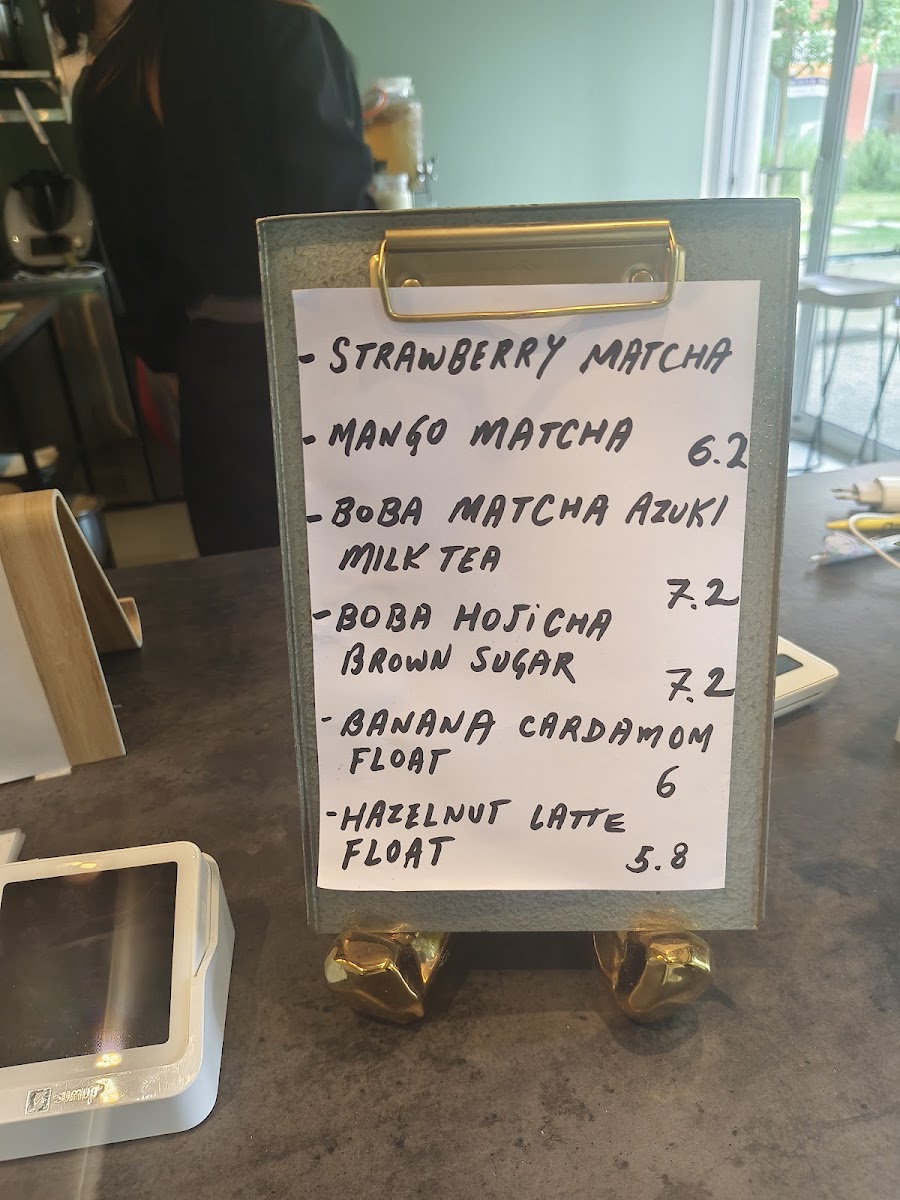 - STRAWBERRY MATCHA
- MANGO MATCHA 6.2
- BOBA MATCHA AZUKI
MILK TEA
7.2
- BOBA HOJiCHA
BROWN SUGAR
7.2
- BANANA CARDAMOM
FLOAT
6
- HAZELNUT LATTE
FLOAT 5.8
sumup